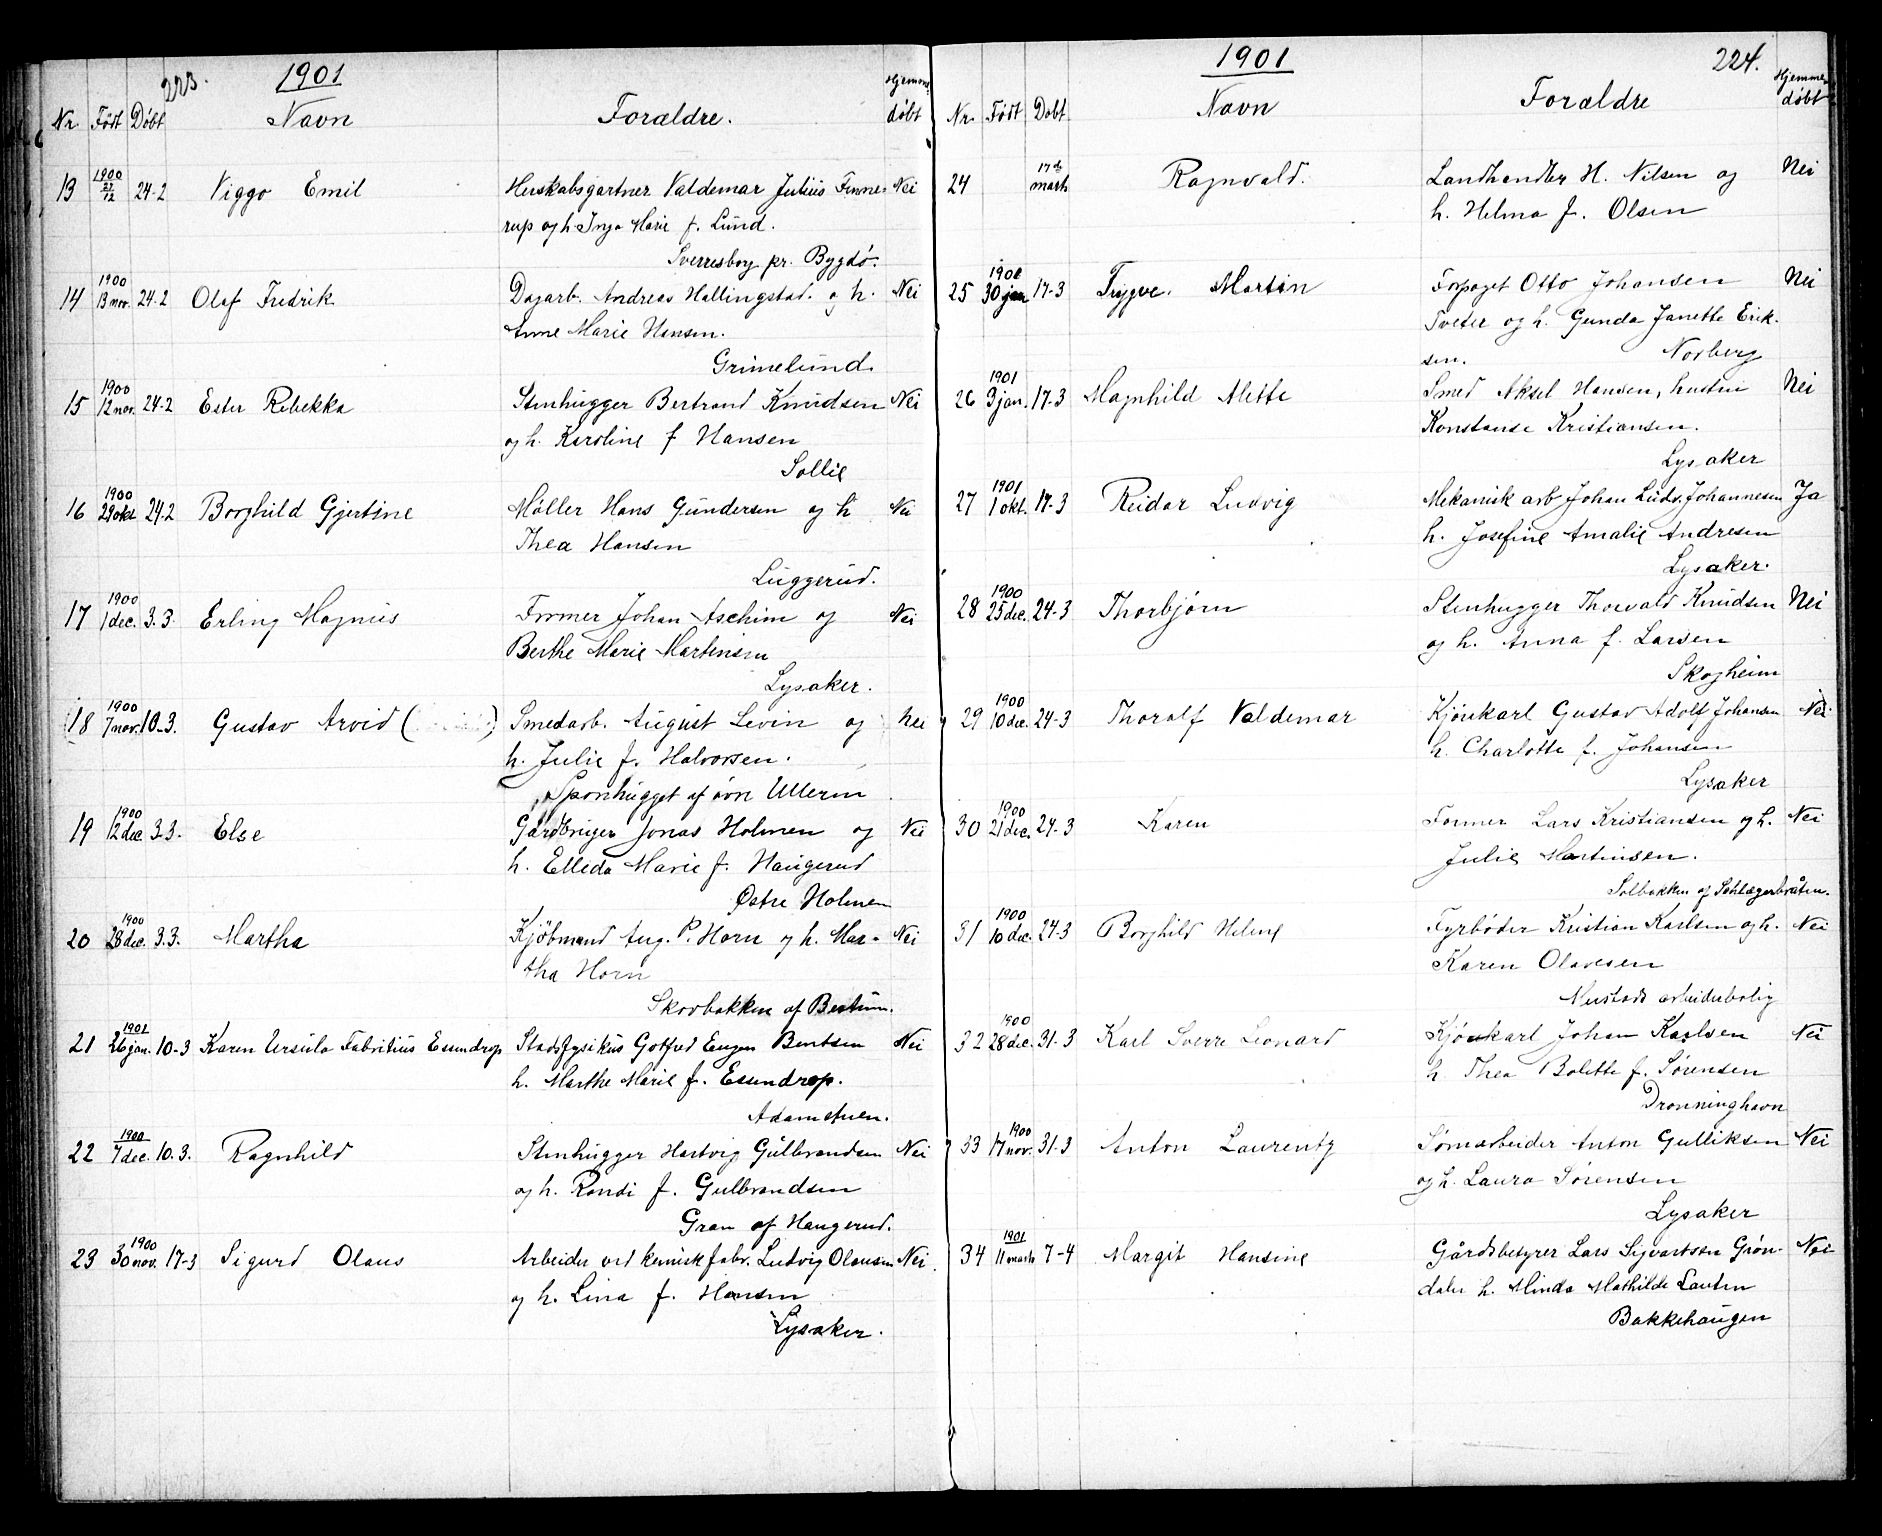 223. 1901
Nr. Født Døbt Navn Forældre. Hjemme-
døbt
13 1900 27/12 24-2 Viggo Emil Herskabsgartner Valdemar Julius Finne- Nei
rup og h. Inga Marie f. Lund.
Sverresborg pr. Bygdø.
14 1900 13 nov. 24-2 Olaf Fredrik Dagarb. Andreas Hallingstad. og h. Nei
Anne Marie Hansen.
Grimelund.
15 1900 12 nov. 24-2 Ester Rebekka Stenhugger Bertrand Knudsen Nei
og h. Karoline f Hansen
Sollie
16 1900 29 okt 24.2 Borghild Gjertine Møller Hans Gundersen og h Nei
Thea Hansen
Luggerud.
17 1900 1 dec. 3.3. Erling Magnus Former Johan Aschim og Nei
Berthe Marie Martinsen
Lysaker.
18 1900 7 nov. 10.3. Gustav Arvid ( ) Smedarb. August Levin og Nei
h. Julie f. Halvorsen.
Sponhugget af øvr Ullern
19 1900 12 dec 3.3. Else Gårdbruger Jonas Holmen og Nei
h. Elleda Marie f. Haugerud
Østre Holmen
20 1900 28 dec. 3.3. Martha Kjøbmand Aug. P. Horn og h. Mar- Nei
tha Horn
Skovbakken af Bestum.
21 1901 26 jan. 10-3 Karen Ursula Fabritius Essendrop Stadsfysikus Gotfred Eugen Bentsen Nei
h. Marthe Marie f. Essendrop.
Adamstuen.
22 1900 7 dec. 10.3. Ragnhild Stenhugger Hartvig Gulbrandsen Nei
og h. Randi f. Gulbrandsen
Gran af Haugerud.
23 1900 30 nov. 17-3 Sigurd Olaus Arbeider ved kemisk fabr. Ludvig Olausen Nei.
og h. Lina f. Hansen
Lysaker.
1901 224.
Nr. Født Døbt Navn Forældre Hjemme-
døbt
24 17de marts Ragnvald. Landhandler H. Nilsen og Nei
h. Helma f. Olsen
25 1901 30 jan 17-3 Trygve. Martin Forpagt Otto Johansen Nei
Tveter og h. Gunda Janette Erik-
sen. Norberg
26 1901 3 jan. 17-3 Magnhild Alette Smed Aksel Hansen, hustru Nei
Konstanse Kristiansen.
Lysaker
27 1901 1 okt. 17-3 Reidar Ludvig Mekanisk arb Johan Ludv. Johannesen Ja
h. Josefine Amalie Andresen
Lysaker.
28 1900 25 dec. 24-3 Thorbjørn Stenhugger Thorvald Knudsen Nei
og h. Anna f. Larsen
Skogheim
29 1900 10 dec. 24-3 Thoralf Valdemar Kjørekarl Gustav Adolf Johansen Nei
h. Charlotte f. Johansen
Lysaker
30 1900 21 dec. 24-3 Karen Former Lars Kristiansen og h. Nei
Julie Martinsen.
Solbakken af Schlægerbråten.
31 1900 10 dec. 24-3 Borghild Helene Fyrbøder Kristian Karlsen og h. Nei
Karen Olavesen
Mustads arbeiderbolig
32 1900 28 dec. 31-3 Karl Sverre Leonard Kjørekarl Johan Karlsen Nei
h. Thea Bolette f. Sørensen
Dronninghavn
33 1900 17 nov. 31-3 Anton Laurentz Sømarbeider Anton Gulliksen Nei
og h. Laura Sørensen
Lysaker
34 1901 11 marts 7-4 Margit Hansine Gårdsbestyrer Lars Sigvartsen Grøn- Nei
dalen h. Minda Mathilde Lauten
Bakkehaugen